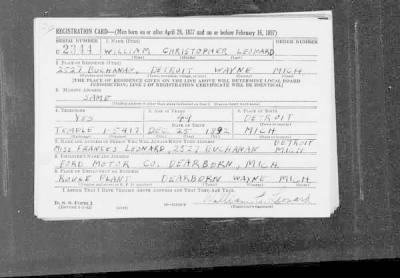 REGISTRATION CARD—(Men born on or after April 28, 1877 and on or before February 16, 1897)
SERIAL NUMBER
1. NAME (Print)
ORDER NUMBER
U 2344
WILLIAM CHRISTOPHER LEONARD
2. PLACE OF RESIDENCE (Print)
2527 BUCHANAN, DETROIT WAYNE MICH.
[THE PLACE OF RESIDENCE GIVEN ON THE LINE ABOVE WILL DETERMINE LOCAL BOARD
JURISDICTION; LINE 2 OF REGISTRATION CERTIFICATE WILL BE IDENTICAL]
3. MAILING ADDRESS
SAME
4. TELEPHONE
5. AGE IN YEARS
6. PLACE OF BIRTH
YES
49
DETROIT
DATE OF BIRTH
TEMPLE 1-5417
DEC. 25 1892
MICH
7. NAME AND ADDRESS OF PERSON WHO WILL ALWAYS KNOW YOUR ADDRESS
DETROIT
MISS FRANCES LEONARD, 2527 BUCHANAN MICH
8. EMPLOYER'S NAME AND ADDRESS
FORD MOTOR CO. DEARBORN, MICH.
9. PLACE OF EMPLOYMENT OR BUSINESS
ROUGE PLANT DEARBORN WAYNE MICH
I AFFIRM THAT I HAVE VERIFIED ABOVE ANSWERS AND THAT THEY ARE TRUE.
D. S. S. Form 1
William C. Leonard